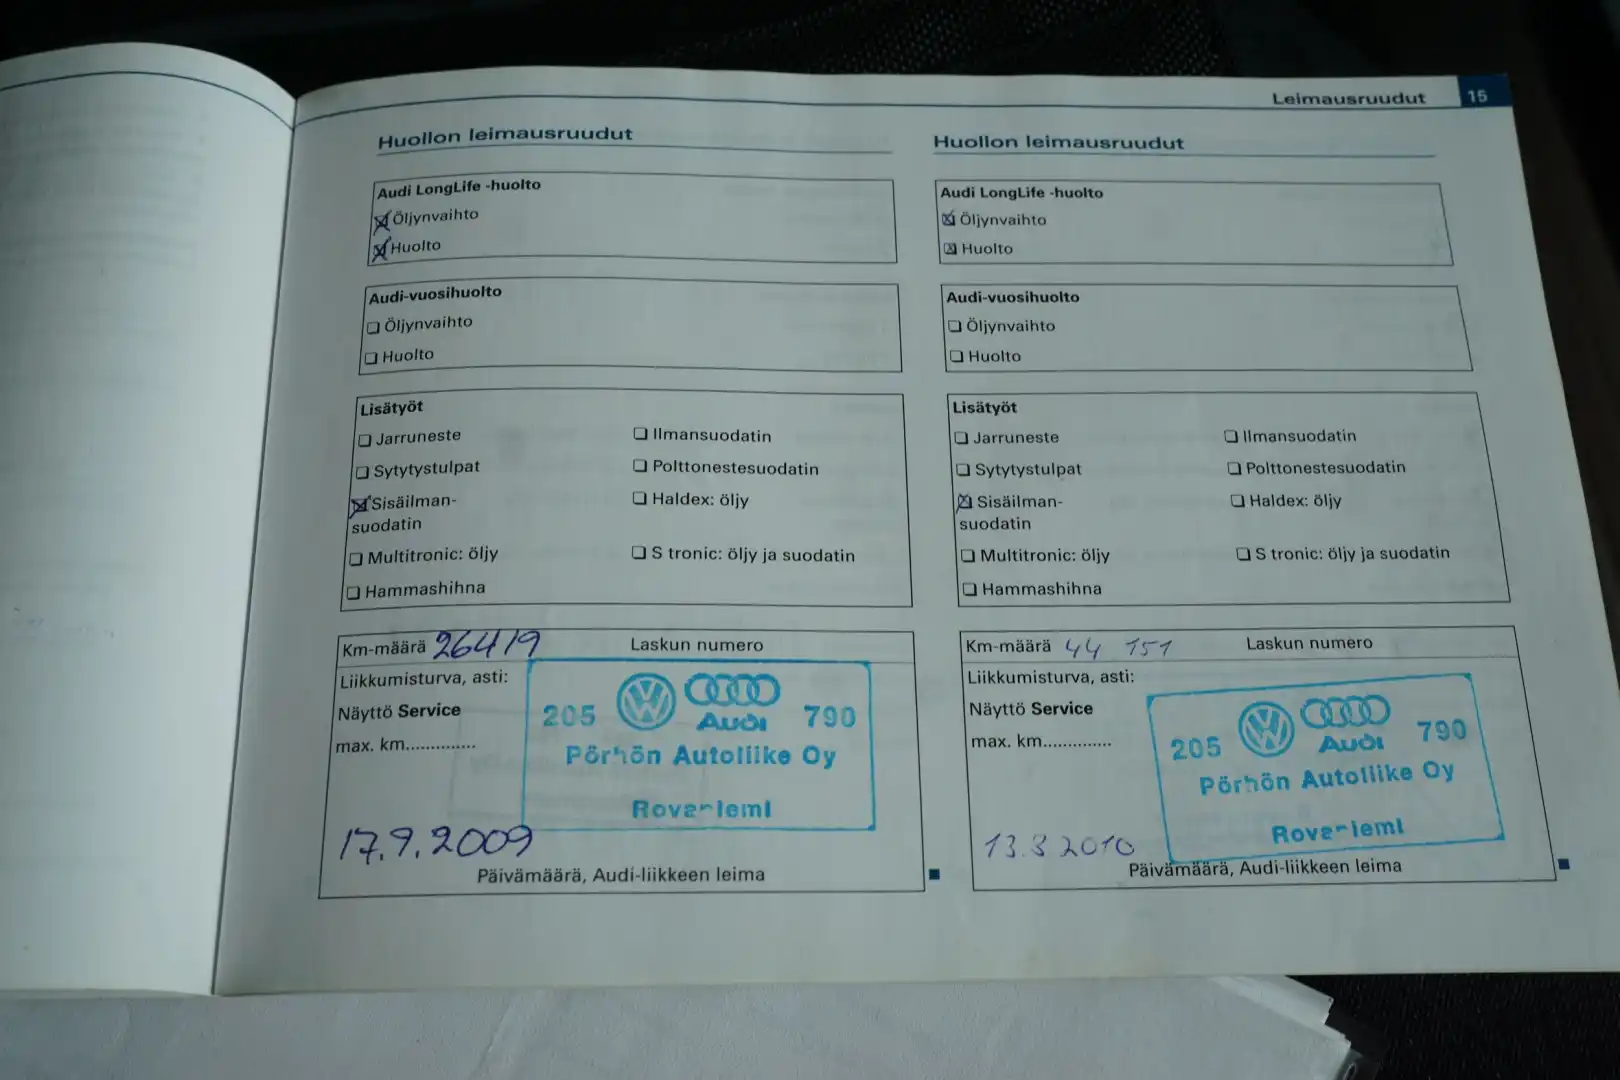 Leimausruudut 15
Huollon leimausruudut
Audi LongLife -huolto
Öljynvaihto
Huolto
Audi-vuosihuolto
Öljynvaihto
Huolto
Lisätyöt
Jarruneste
Ilmansuodatin
Sytytystulpat
Polttonestesuodatin
Sisäilman-
suodatin
Haldex: öljy
Multitronic: öljy
S tronic: öljy ja suodatin
Hammashihna
Km-määrä 26419
Laskun numero
Liikkumisturva, asti:
Näyttö Service
max. km..............
205 VW Audi 790
Pörhön Autoliike Oy
Rovaniemi
17.9.2009
Päivämäärä, Audi-liikkeen leima
Huollon leimausruudut
Audi LongLife -huolto
Öljynvaihto
Huolto
Audi-vuosihuolto
Öljynvaihto
Huolto
Lisätyöt
Jarruneste
Ilmansuodatin
Sytytystulpat
Polttonestesuodatin
Sisäilman-
suodatin
Haldex: öljy
Multitronic: öljy
S tronic: öljy ja suodatin
Hammashihna
Km-määrä 44 151
Laskun numero
Liikkumisturva, asti:
Näyttö Service
max. km..............
205 VW Audi 790
Pörhön Autoliike Oy
Rovaniemi
13.8 2010
Päivämäärä, Audi-liikkeen leima